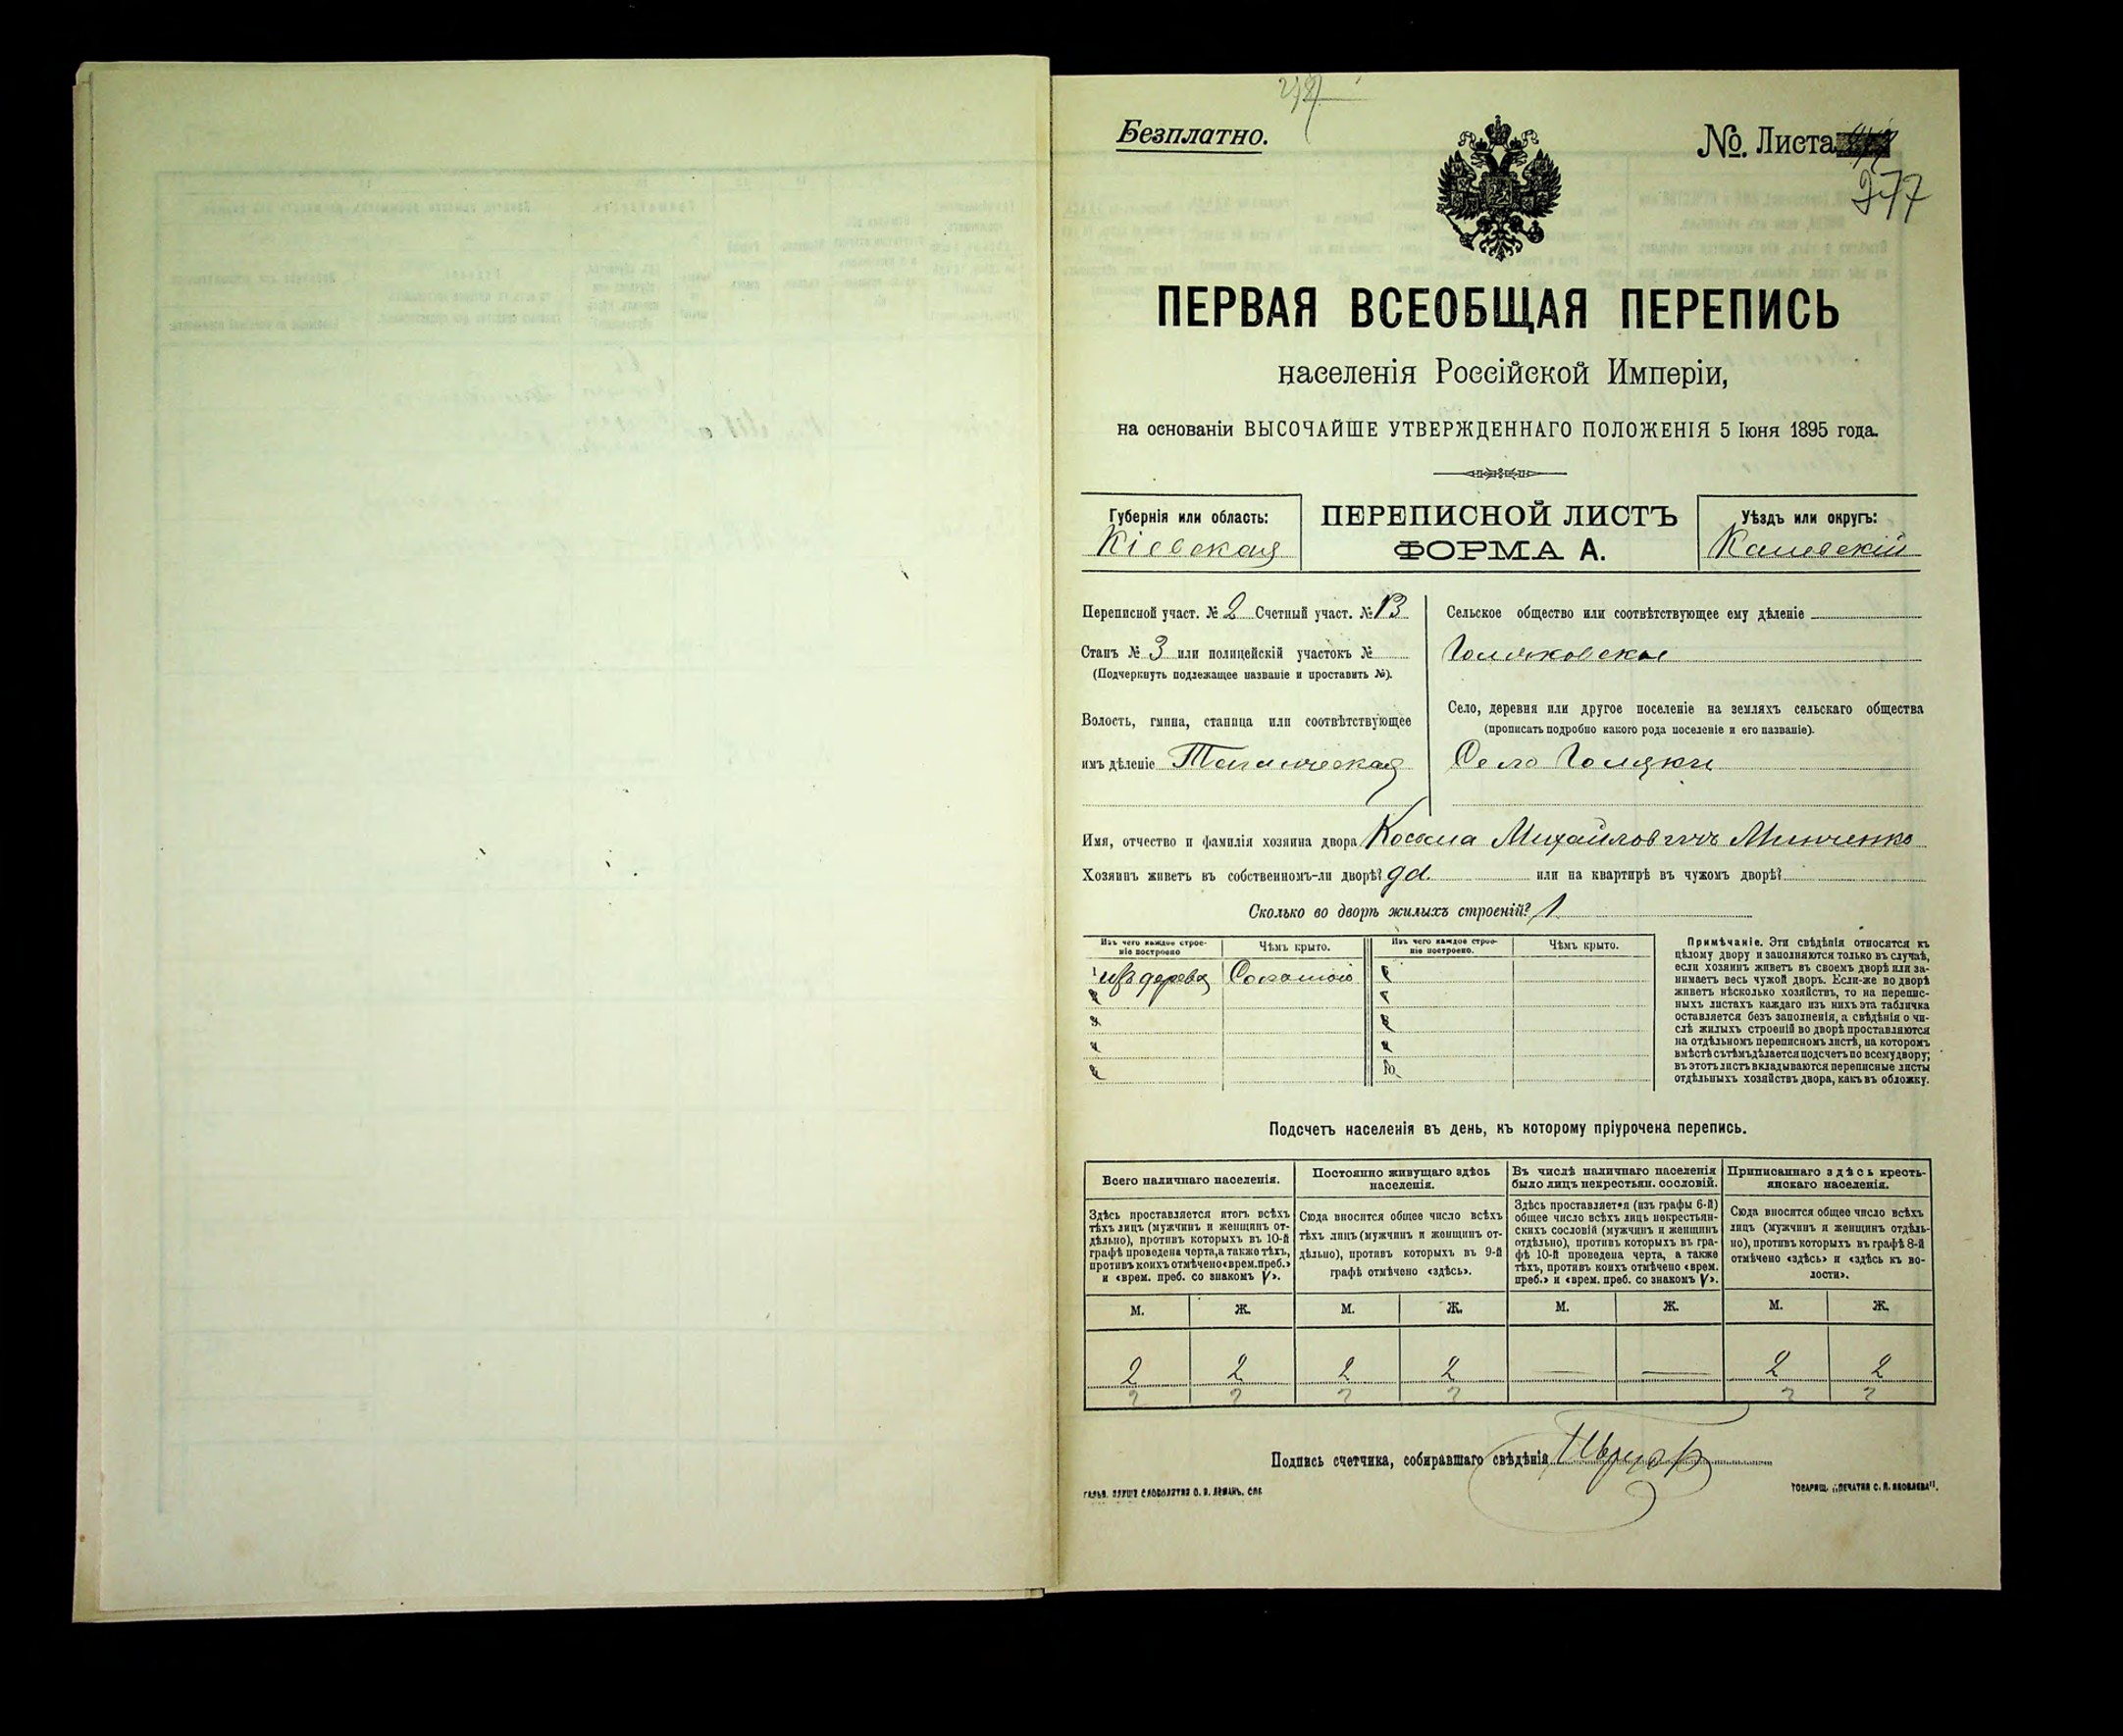 Безплатно.
№. Листа
277
ПЕРВАЯ ВСЕОБЩАЯ ПЕРЕПИСЬ
населенія Россійской Имперіи,
на основаніи ВЫСОЧАЙШЕ УТВЕРЖДЕННАГО ПОЛОЖЕНІЯ 5 Іюня 1895 года.
Губернія или область:
Кіевская
ПЕРЕПИСНОЙ ЛИСТЪ
ФОРМА А.
Уѣздъ или округъ:
Каневскій
Переписной участ. № 2 Счетный участ. № 13
Станъ № 3 или полицейскій участокъ №
(Подчеркнуть подлежащее названіе и проставить №).
Волость, гмина, станица или соотвѣтствующее
имъ дѣленіе
Сельское общество или соотвѣтствующее ему дѣленіе
Голяковское
Село, деревня или другое поселеніе на земляхъ сельскаго общества
(прописать подробно какого рода поселеніе и его названіе).
Село Голяки
Имя, отчество и фамилія хозяина двора Косьма Михайловичъ Минченко
Хозяинъ живетъ въ собственномъ-ли дворѣ? да. или на квартирѣ въ чужомъ дворѣ?
Сколько во дворѣ жилыхъ строеній? 1
Изъ чего каждое строе-
ніе построено
Чѣмъ крыто.
Изъ чего каждое строе-
ніе построено.
Чѣмъ крыто.
1 изъ дерева Соломою
10
Примѣчаніе. Эти свѣдѣнія относятся къ
цѣлому двору и заполняются только въ случаѣ,
если хозяинъ живетъ въ своемъ дворѣ или за-
нимаетъ весь чужой дворъ. Если-же во дворѣ
живетъ нѣсколько хозяйствъ, то на перепис-
ныхъ листахъ каждаго изъ нихъ эта табличка
оставляется безъ заполненія, а свѣдѣнія о чи-
слѣ жилыхъ строеній во дворѣ проставляются
на отдѣльномъ переписномъ листѣ, на которомъ
вмѣстѣ съ тѣмъ дѣлается подсчетъ по всему двору;
въ этотъ листъ вкладываются переписные листы
отдѣльныхъ хозяйствъ двора, какъ въ обложку.
Подсчетъ населенія въ день, къ которому пріурочена перепись.
Всего наличнаго населенія.
Здѣсь проставляется итогъ всѣхъ
тѣхъ лицъ (мужчинъ и женщинъ от-
дѣльно), противъ которыхъ въ 10-й
графѣ проведена черта, а также тѣхъ,
противъ коихъ отмѣчено «врем. преб.»
и «врем. преб. со знакомъ V».
Постоянно живущаго здѣсь
населенія.
Сюда вносится общее число всѣхъ
тѣхъ лицъ (мужчинъ и женщинъ от-
дѣльно), противъ которыхъ въ 9-й
графѣ отмѣчено «здѣсь».
Въ числѣ наличнаго населенія
было лицъ некрестьян. сословій.
Здѣсь проставляется (изъ графы 6-й)
общее число всѣхъ лицъ некрестьян-
скихъ сословій (мужчинъ и женщинъ
отдѣльно), противъ которыхъ въ гра-
фѣ 10-й проведена черта, а также
тѣхъ, противъ коихъ отмѣчено «врем.
преб.» и «врем. преб. со знакомъ V».
Приписаннаго здѣсь кресть-
янскаго населенія.
Сюда вносится общее число всѣхъ
лицъ (мужчинъ и женщинъ отдѣль-
но), противъ которыхъ въ графѣ 8-й
отмѣчено «здѣсь» и «здѣсь къ во-
лости».
М. Ж. М. Ж. М. Ж. М. Ж.
2 2 2 2 — — 2 2
2 2 2 2 2 2
Подпись счетчика, собиравшаго свѣдѣнія
ТОВАРИЩ. „ПЕЧАТНЯ С. П. ЯКОВЛЕВА".